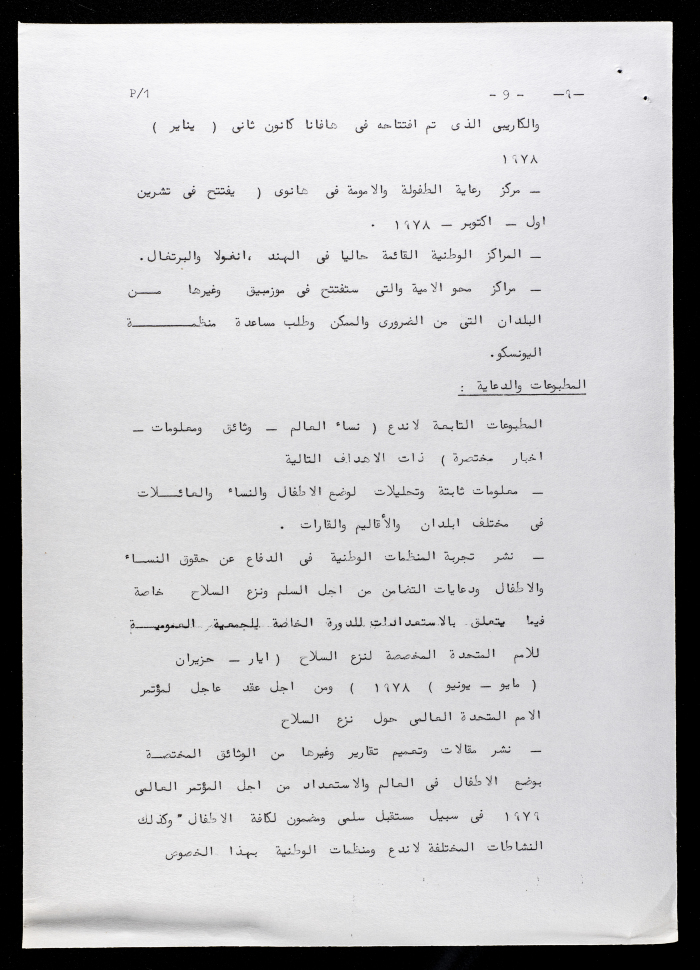 P/1 - 9 - -٩-
والكاريبى الذى تم افتتاحه فى هافانا كانون ثانى ( يناير )
١٩٧٨
— مركز رعاية الطفولة والامومة فى هانوى ( يفتتح فى تشرين
اول — اكتوبر — ١٩٧٨ .
— المراكز الوطنية القائمة حاليا فى الهند ،انغولا والبرتغال.
— مراكز محو الامية والتى ستفتتح فى موزمبيق وغيرها مــن
البلدان التى من الضرورى والممكن وطلب مساعدة منظمــــــــة
اليونسكو.
المطبوعات والدعاية :
المطبوعات التابعة لاندع ( نساء العالم — وثائق ومعلومات —
اخبار مختصرة ) ذات الاهداف التالية
— معلومات ثابتة وتحليلات لوضع الاطفال والنساء والعائــلات
فى مختلف ابلدان والأقاليم والقارات .
— نشر تجربة المنظمات الوطنية فى الدفاع عن حقوق النســاء
والاطفال ودعايات التضامن من اجل السلم ونزع السلاح خاصة
فيما يتعلق بالاستعدادات للدورة الخاصة للجمعية العموميــة
للامم المتحدة المخصصة لنزع السلاح ( ايار — حزيران
( مايو — يونيو ) ١٩٧٨ ) ومن اجل عقد عاجل لمؤتمر
الامم المتحدة العالمى حول نزع السلاح
— نشر مقالات وتعميم تقارير وغيرها من الوثائق المختصــة
بوضع الاطفال فى العالم والاستعداد من اجل المؤتمر العالمى
١٩٧٩ فى سبيل مستقبل سلمى ومضمون لكافة الاطفال " وكذلك
النشاطات المختلفة لاندع ومنظمات الوطنية بهذا الخصوص